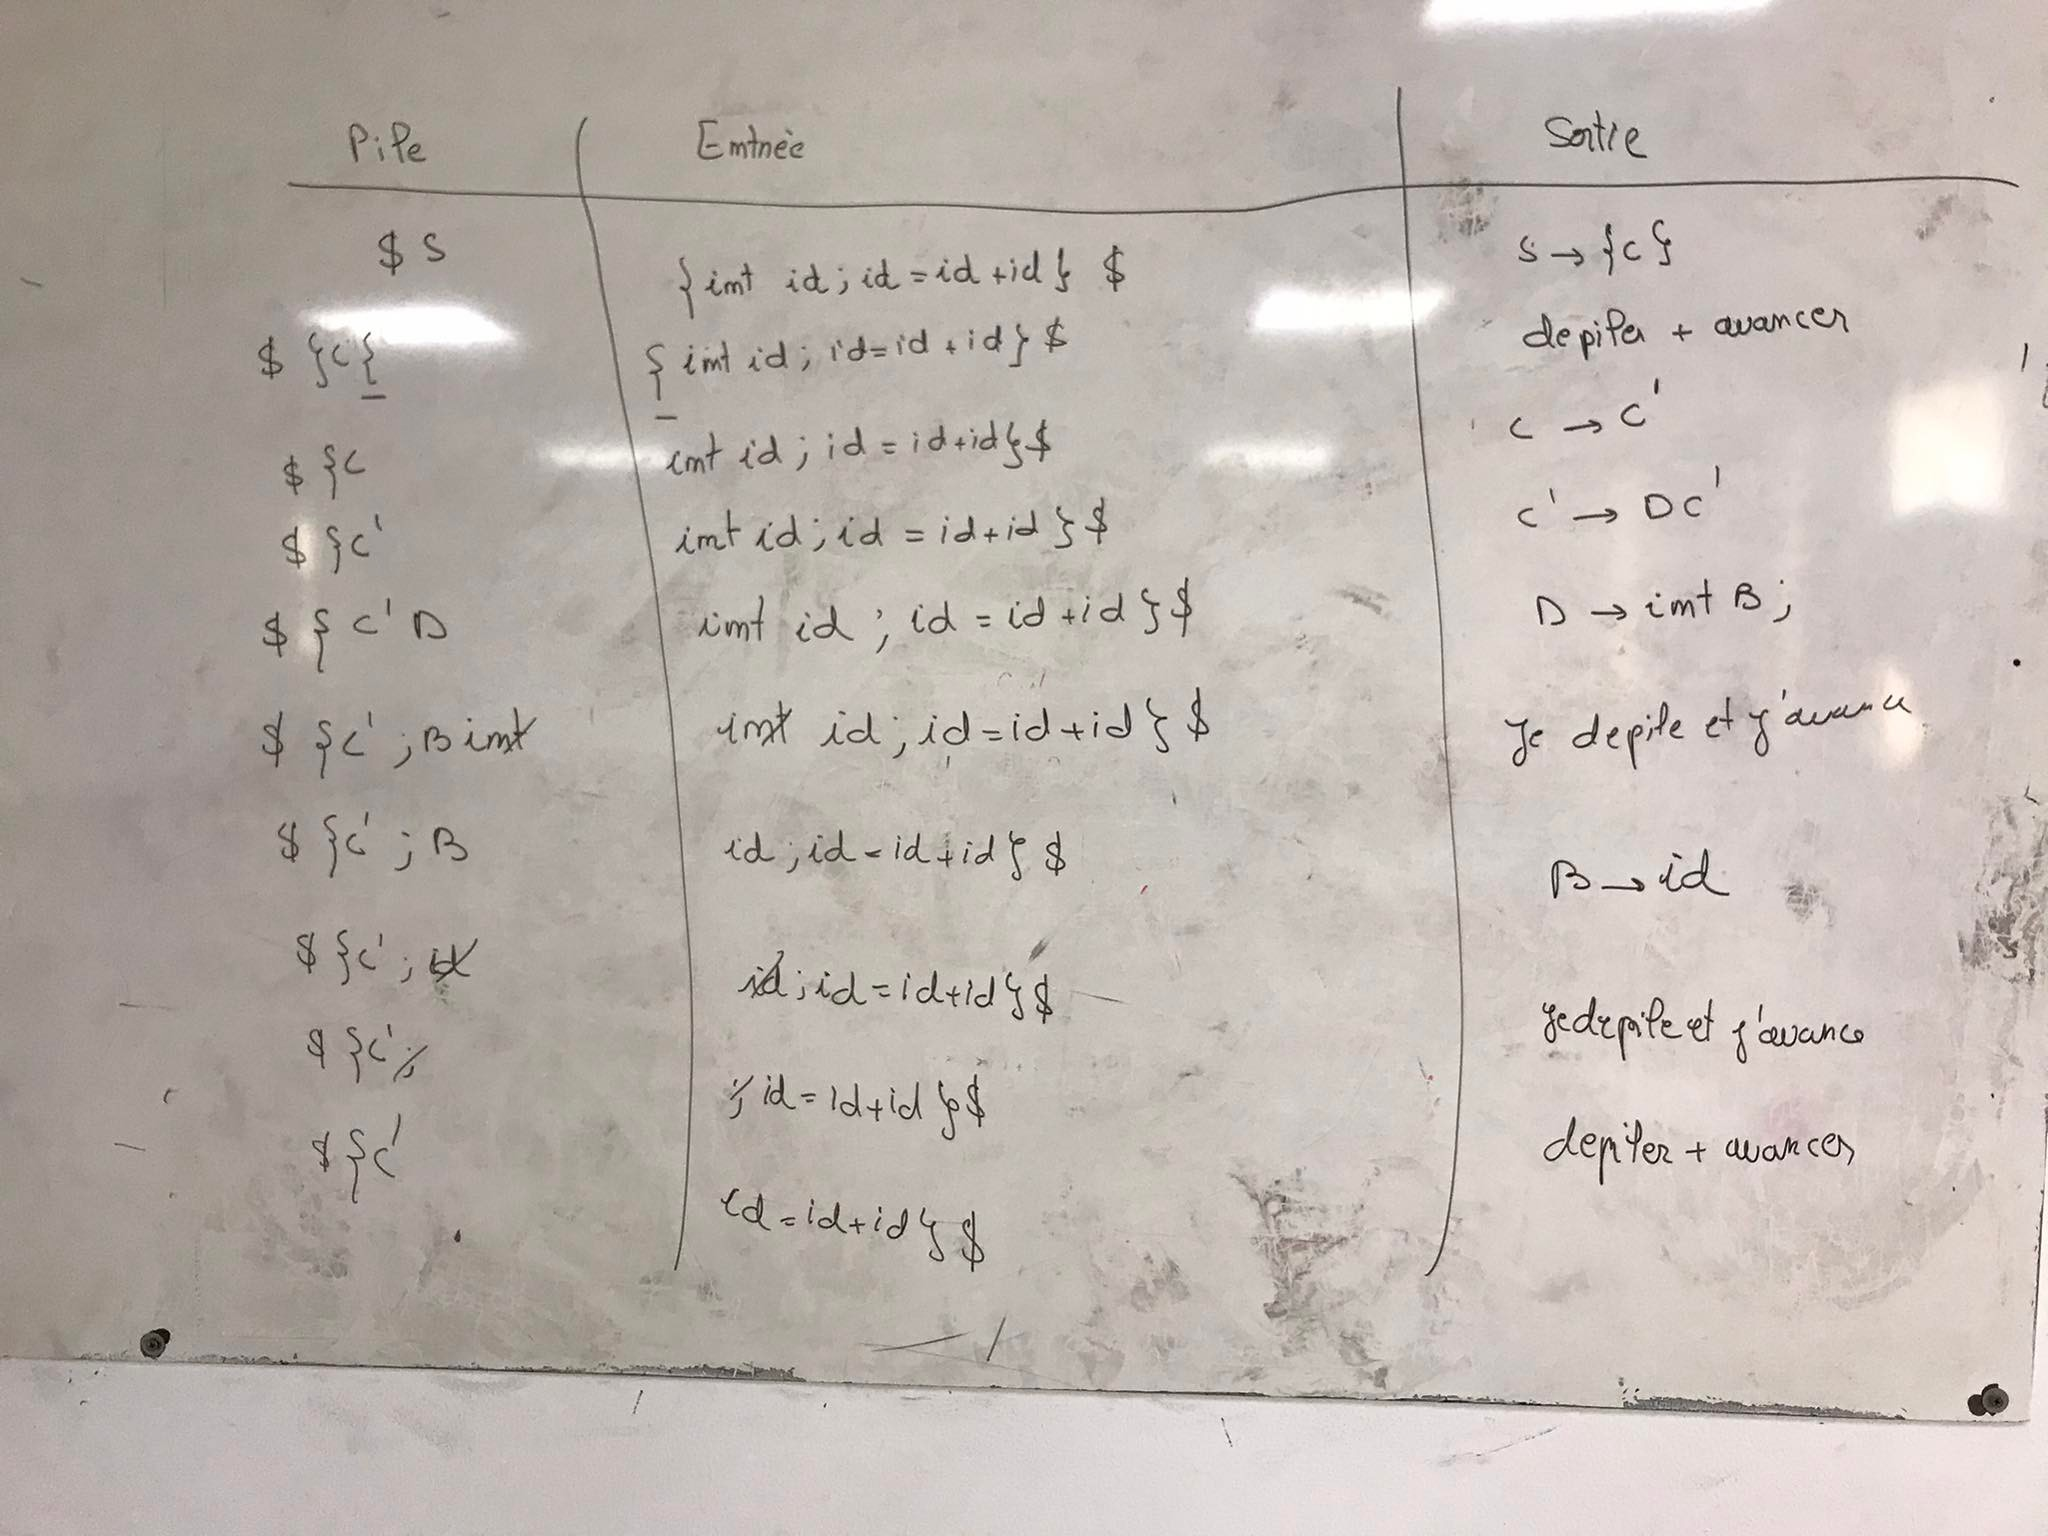 Pile Entrée Sortie
$ S {int id ; id = id + id} $ S → {C}
$ }C{ {int id ; id = id + id} $ depiler + avancer
$ }C int id ; id = id + id} $ C → C'
$ }C' int id ; id = id + id} $ C' → DC'
$ } C' D int id ; id = id + id} $ D → int B ;
$ }C' ; B int int id ; id = id + id} $ Je depile et j'avance
$ }C' ; B id ; id = id + id} $ B → id
$ }C' ; id id ; id = id + id} $ Je depile et j'avance
$ }C' ; ; id = id + id} $ depiler + avancer
$ }C' id = id + id} $